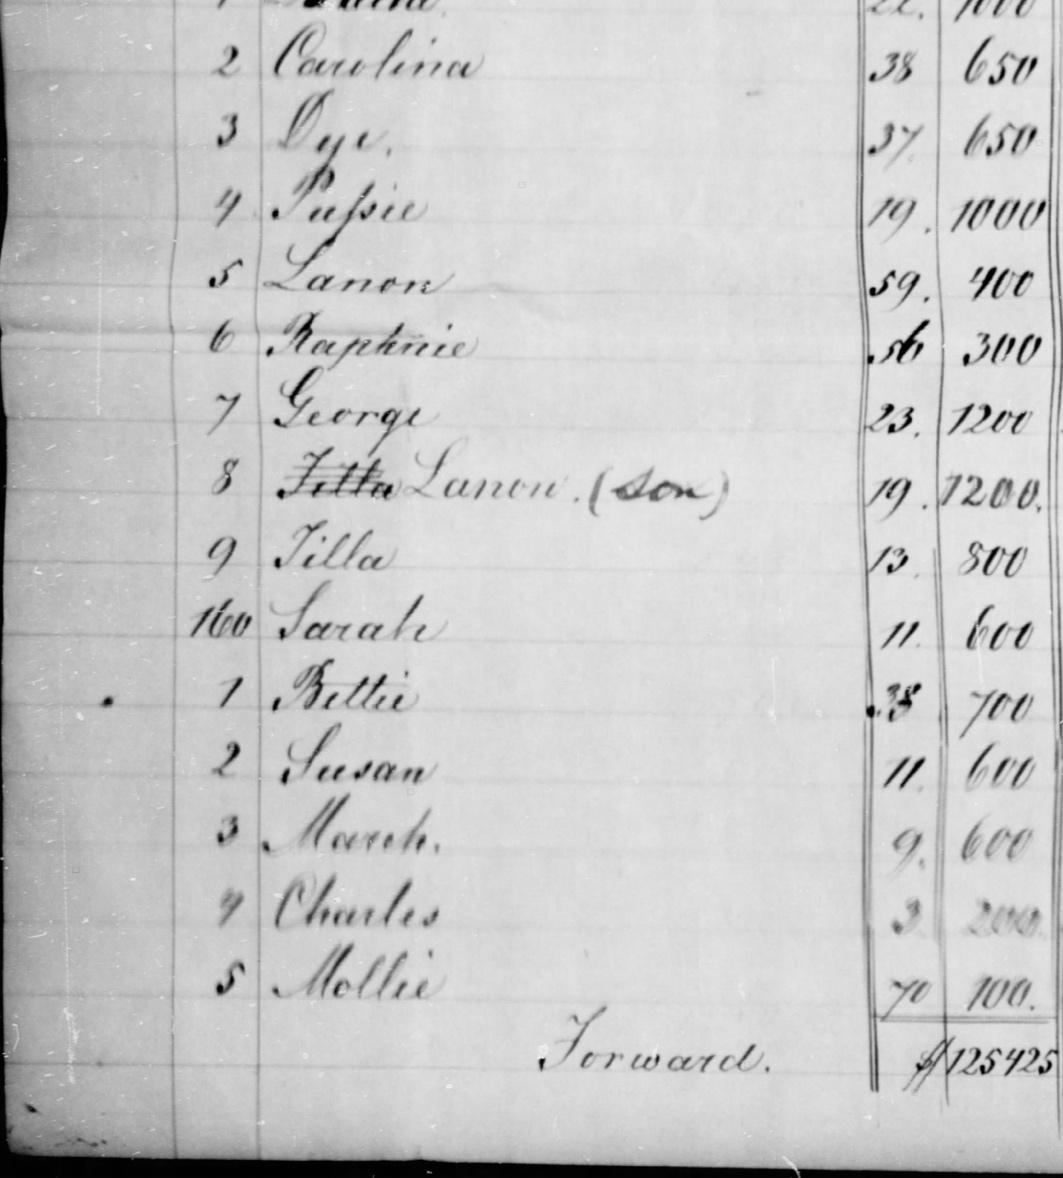 22. 1000
2 Carolina 38 650
3 Dye. 37. 650
4 Pussie 19. 1000
5 Lanon 59. 400
6 Raphnie 56 300
7 George 23. 1200
8 Tilla Lanon. (son) 19. 1200.
9 Tilla 13. 800
160 Sarah 11. 600
1 Bettie 38 700
2 Susan 11. 600
3 March. 9. 600
4 Charles 3. 200
5 Mollie 70 100.
Forward. $125425